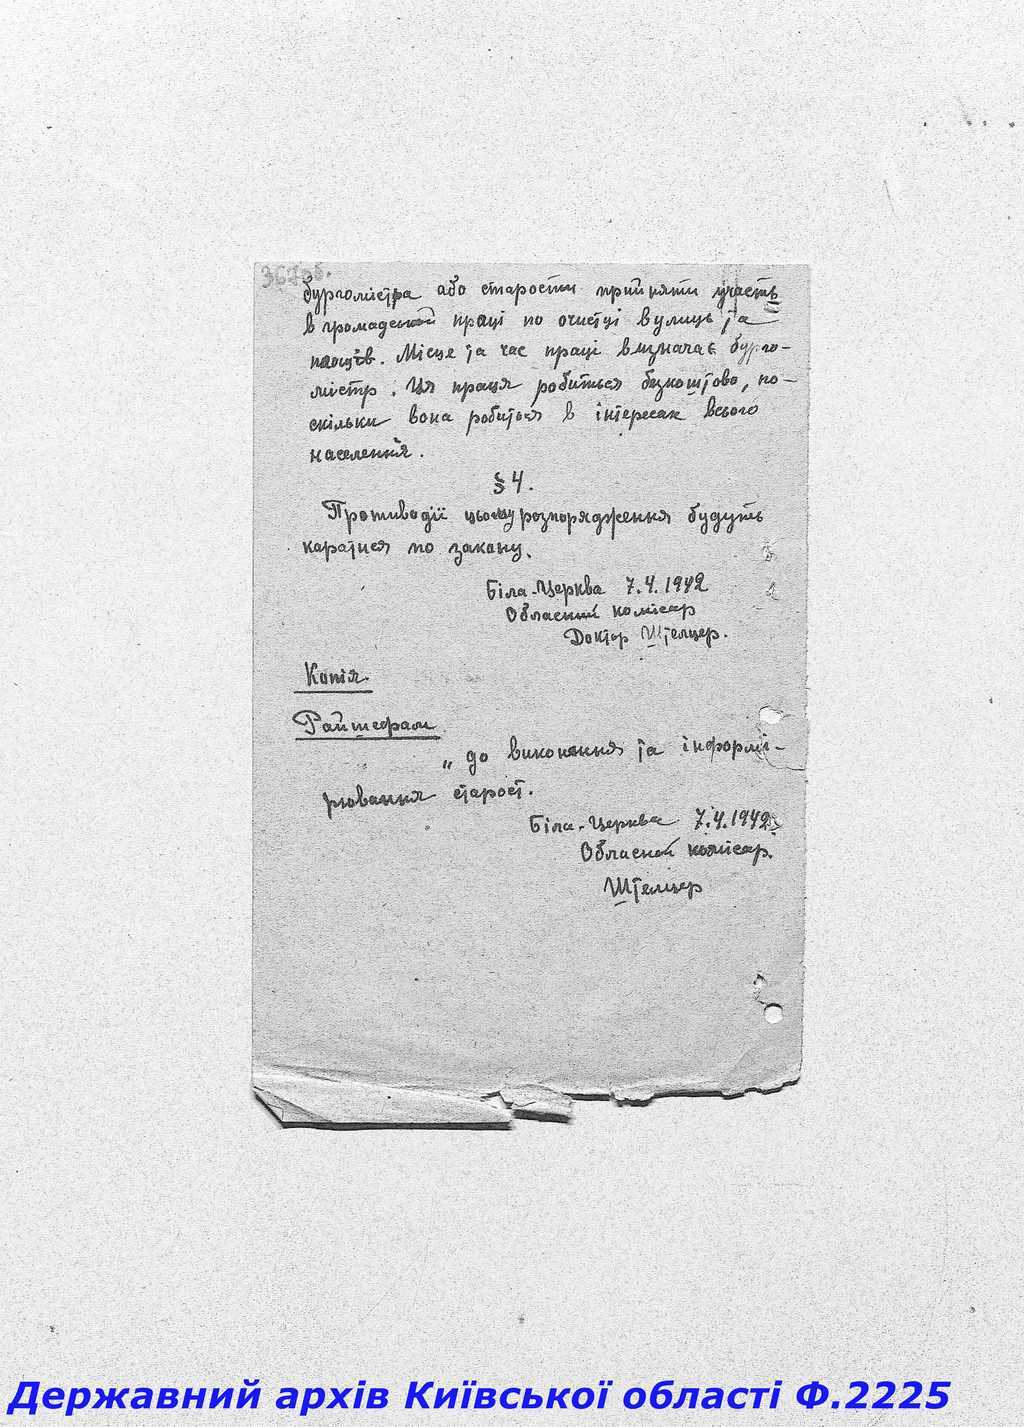 367об.
бургомістра або старости прийняти участь
в громадській праці по очистці вулиць та
площів. Місце та час праці визначає бурго-
містр. Ця праця робиться безкоштово, по-
скільки вона робится в інтересах всього
населення.
§ 4.
Противодії цьому розпорядження будуть
каратися по закону.
Біла-Церква 7.4.1942
Обласний комісар
Доктор Штелцер.
Копія.
Райшефам
„ до виконання та інформі-
рювання старост.
Біла-Церква 7.4.1942
Обласной комісар.
Штелцер
Державний архів Київської області Ф.2225